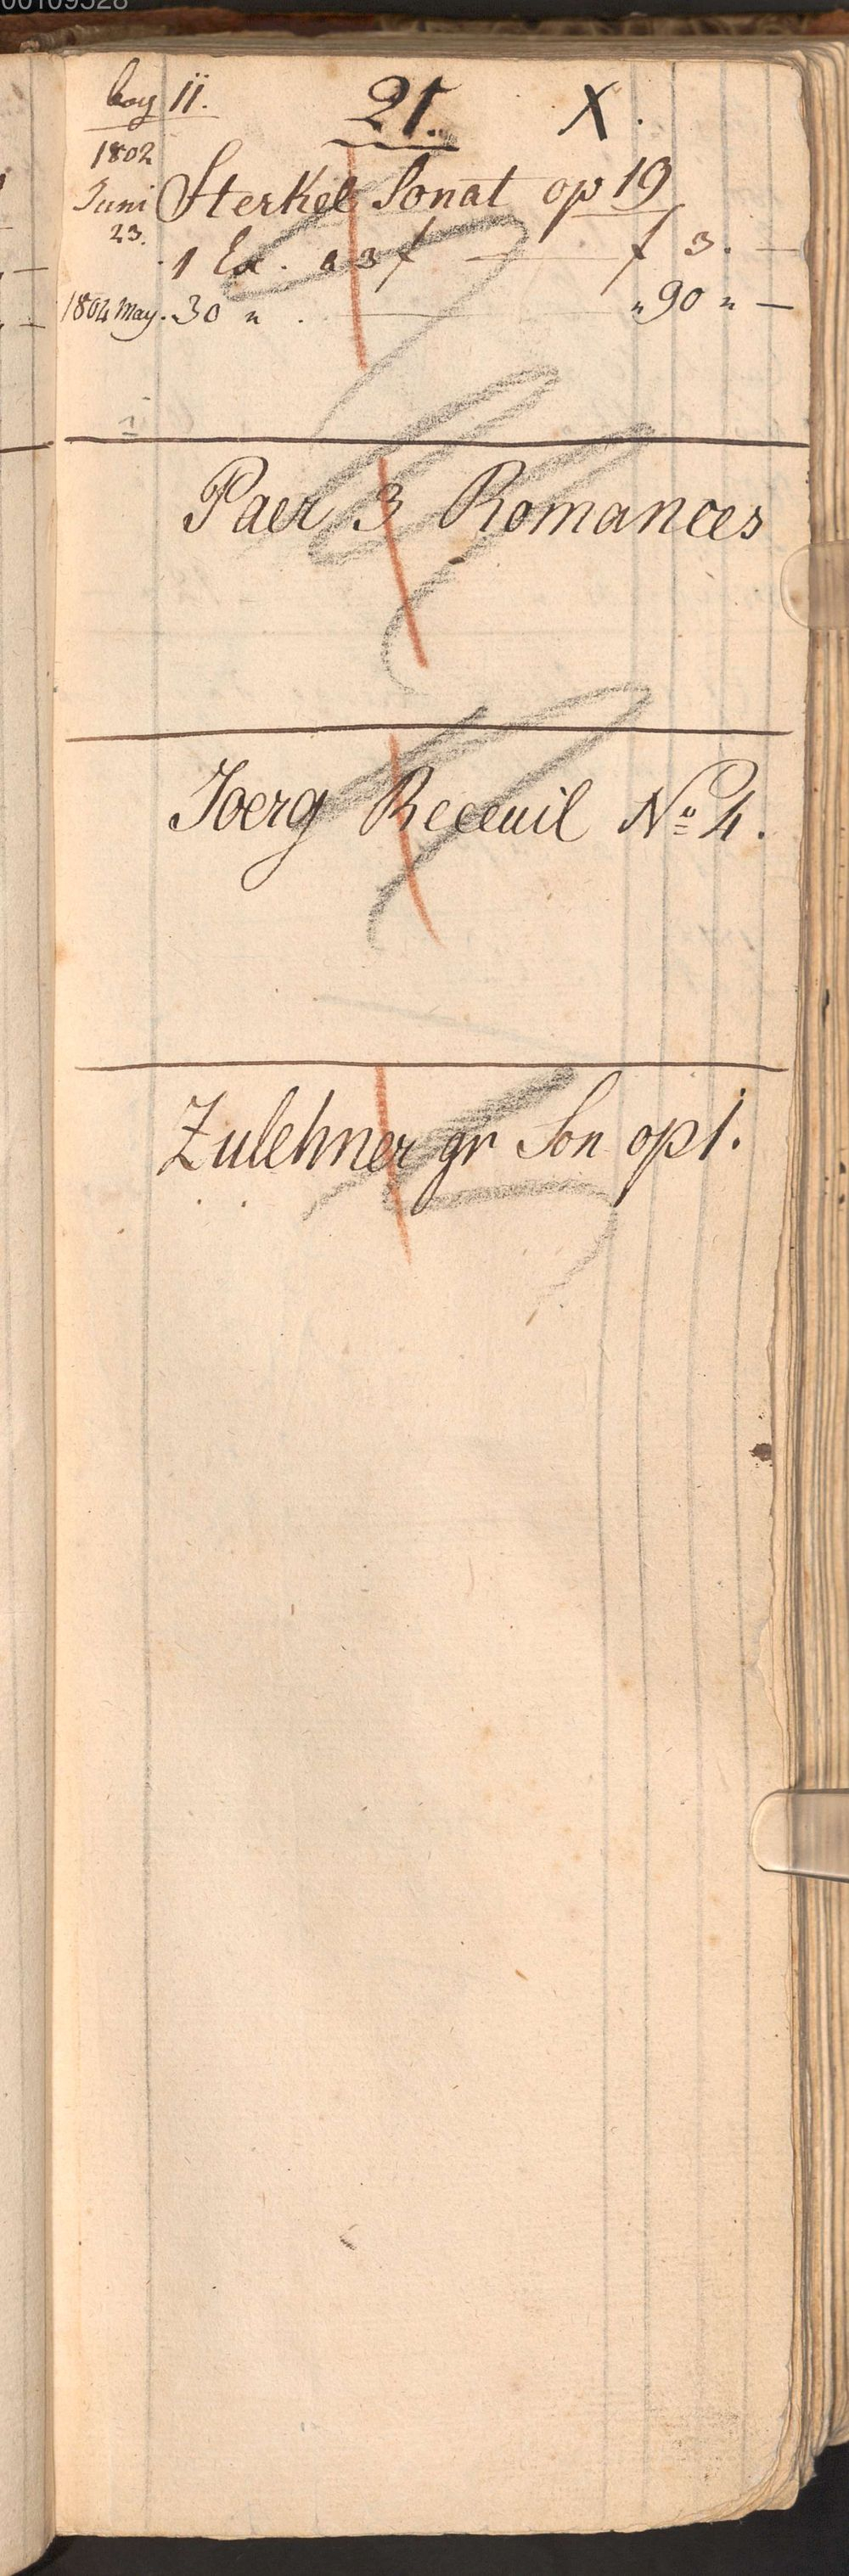 00109528
bog 11.
21. X.
1802
Juni Sterkel Sonat op 19
23.
1 Ex. a 3 f — f 3. —
1804 May. 30 " . — " 90 " —
Paer 3 Romances
Joerg Receuil No 4.
Zulehner gr Son op 1.